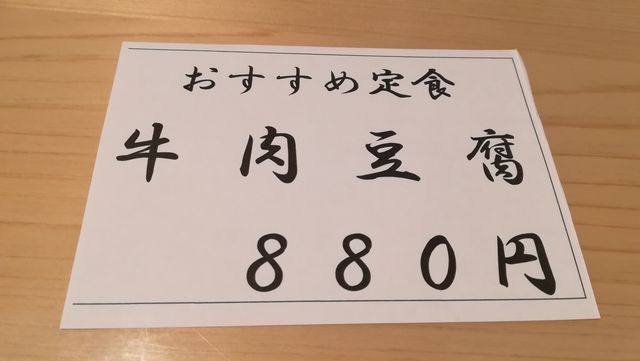 おすすめ定食
牛肉豆腐
880円